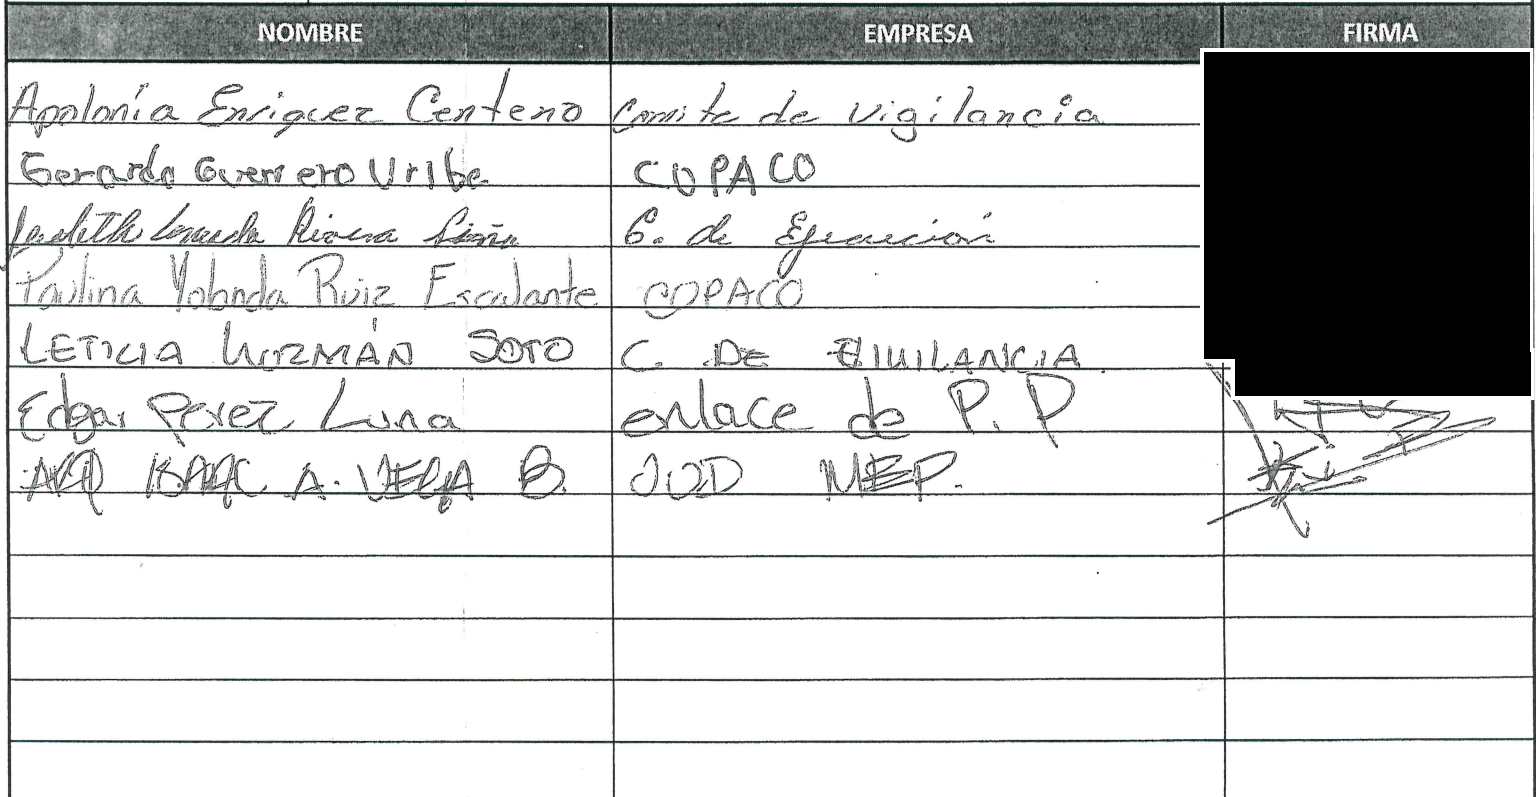 NOMBRE EMPRESA FIRMA
Apolonía Enriquez Centeno Comite de Vigilancia
Gerardo Guerrero Uribe COPACO
Rivera C. de Ejecución
Paulina Yolanda Ruiz Escalante COPACO
LETICIA GUZMÁN SOTO C. DE VIGILANCIA
Edgar Perez Luna enlace de P. P
ARQ ISAAC A. VEGA B. JUD MEP.